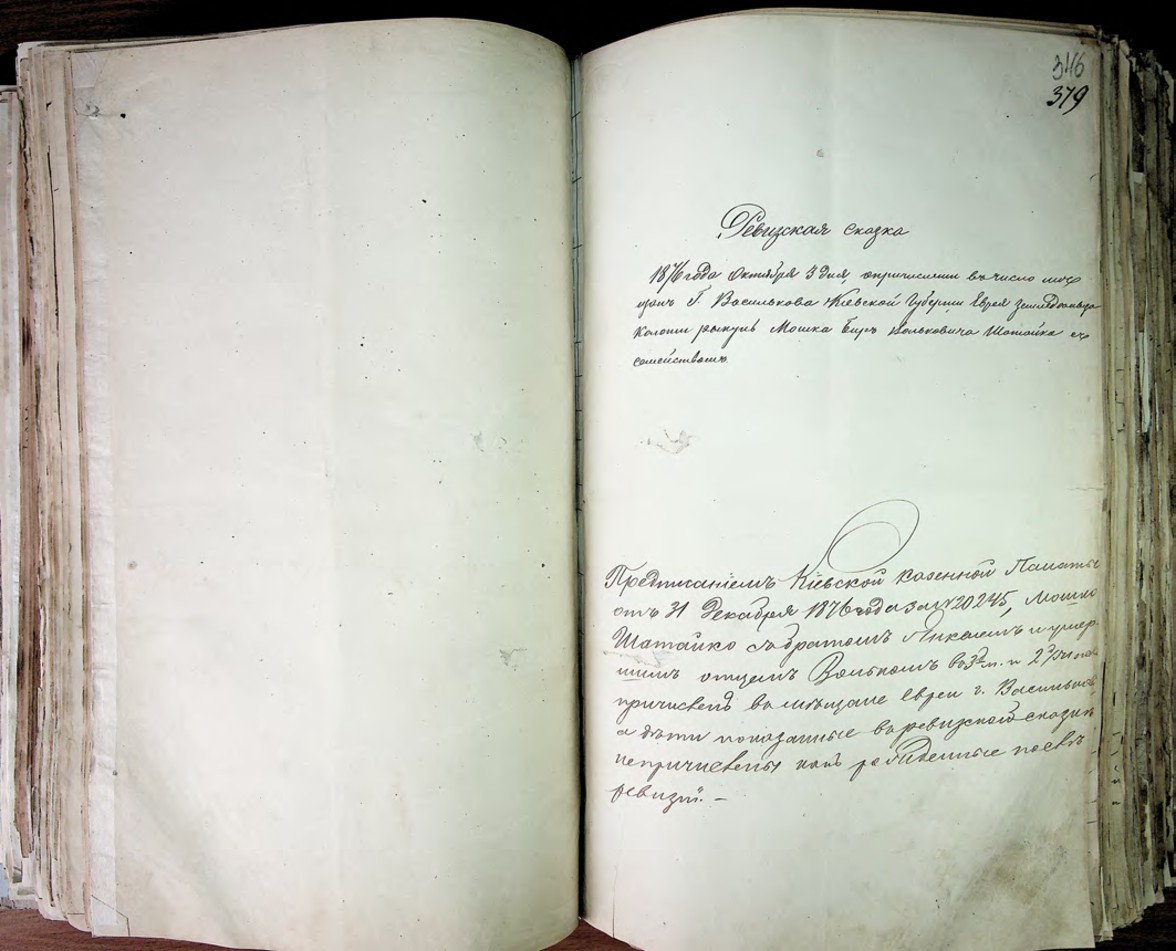 346
379
Ревизская сказка
1876 года Октября 3 дня, опричислении въ число мѣщ
анъ Г. Василькова Кіевской Губерніи Еврея Земледѣльца
Колоніи Мошка Беръ Вольковича Шатайка съ
семействомъ
Предписаніемъ Кіевской Казенной Палаты
отъ 31 Декабря 1876 года за № 20245, Мошко
Шатайко собратомъ и умер
шимъ отцемъ Волькомъ въ 3х м. и 2х
причисленъ вмѣщане Евреи г. Василькова
а дѣти показанные въ ревизской сказкѣ
непричислены какъ рожденные послѣ
ревизіи. —